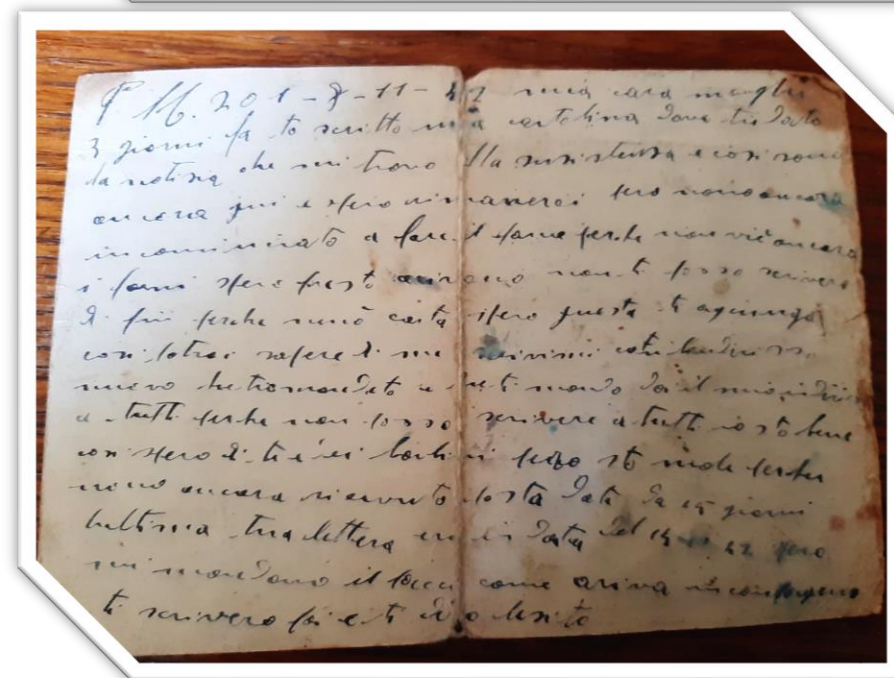 P. M. 201 - 8 - 11 - 42 mia cara moglie
3 giorni fa to scritto una cartolina dove tio dato
la notizia che mi trovo alla susistensa e cosi sono
ancora qui e spero rimanerci pero nono ancora
incominciato a fare il pane perche non vie ancora
i forni spero presto arivano non ti posso scrivere
di piu perche nono carta spero questa ti agiunga
cosi potrai sapere di me
nuovo che tiomandato e che ti mando dai il mio
a tutti perche non posso scrivere a tutti io sto bene
cosi spero di te e pero sto male perche
nono ancora ricevuto posta data da 15 giorni
lultima tua lettera in data del 42 pero
mi mandono il come ariva
ti scrivero poi e ti lesito